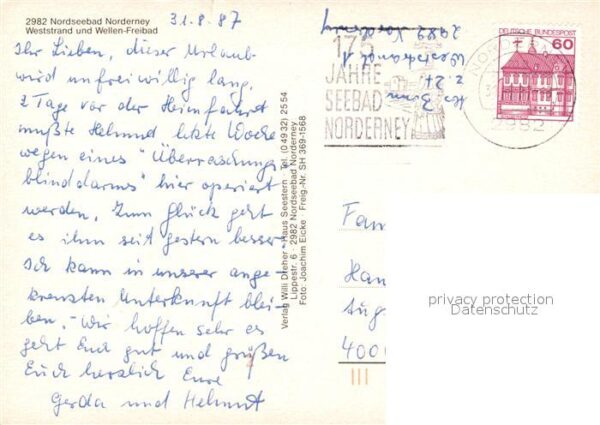 2982 Nordseebad Norderney
Weststrand und Wellen-Freibad
31.8.87
Ihr Lieben, dieser Urlaub
wird unfreiwillig lang.
2 Tage vor der Heimfahrt
mußte Helmut letzte Woche
wegen eines "Überraschungs
blinddarms" hier operiert
werden. Zum Glück geht
es ihm seit gestern besser
Ich kann in unserer ange-
kreuzten Unterkunft blei-
ben. Wir hoffen sehr es
geht Euch gut und grüßen
Euch herzlich Eure
Gerda und Helmut
Verlag Willi Dreher · Haus Seestern · Tel. (0 49 32) 25 54
Lippestr. 6 · 2982 Nordseebad Norderney
Foto: Joachim Eicke · Freig.-Nr. SH 369-1568
z. Zt.
2982 Norderney
175
JAHRE
SEEBAD
NORDERNEY
DEUTSCHE BUNDESPOST
60
2982
Fam
Han
Aug
4000
privacy protection
Datenschutz